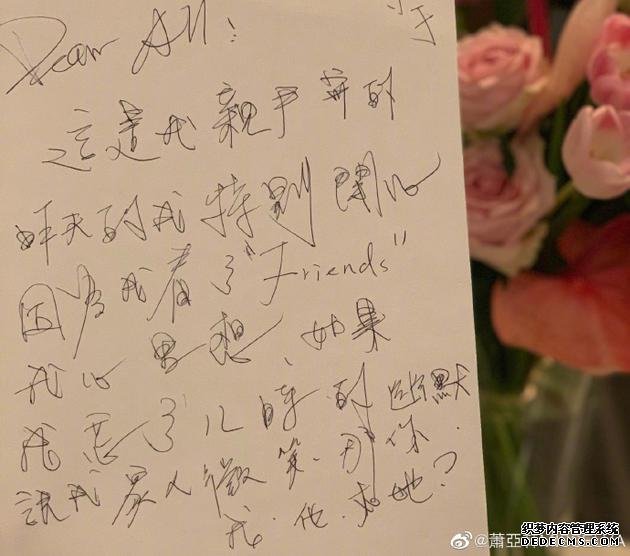 Dear All:
這是我親手寫的
昨天的我特別開心
因為我看了"Friends"
我心 想、如果
我 了兒時的幽默
我 人微笑.那你.
我.他. 她?
@蕭亞
织梦内容管理系统
DEDECMS.COM